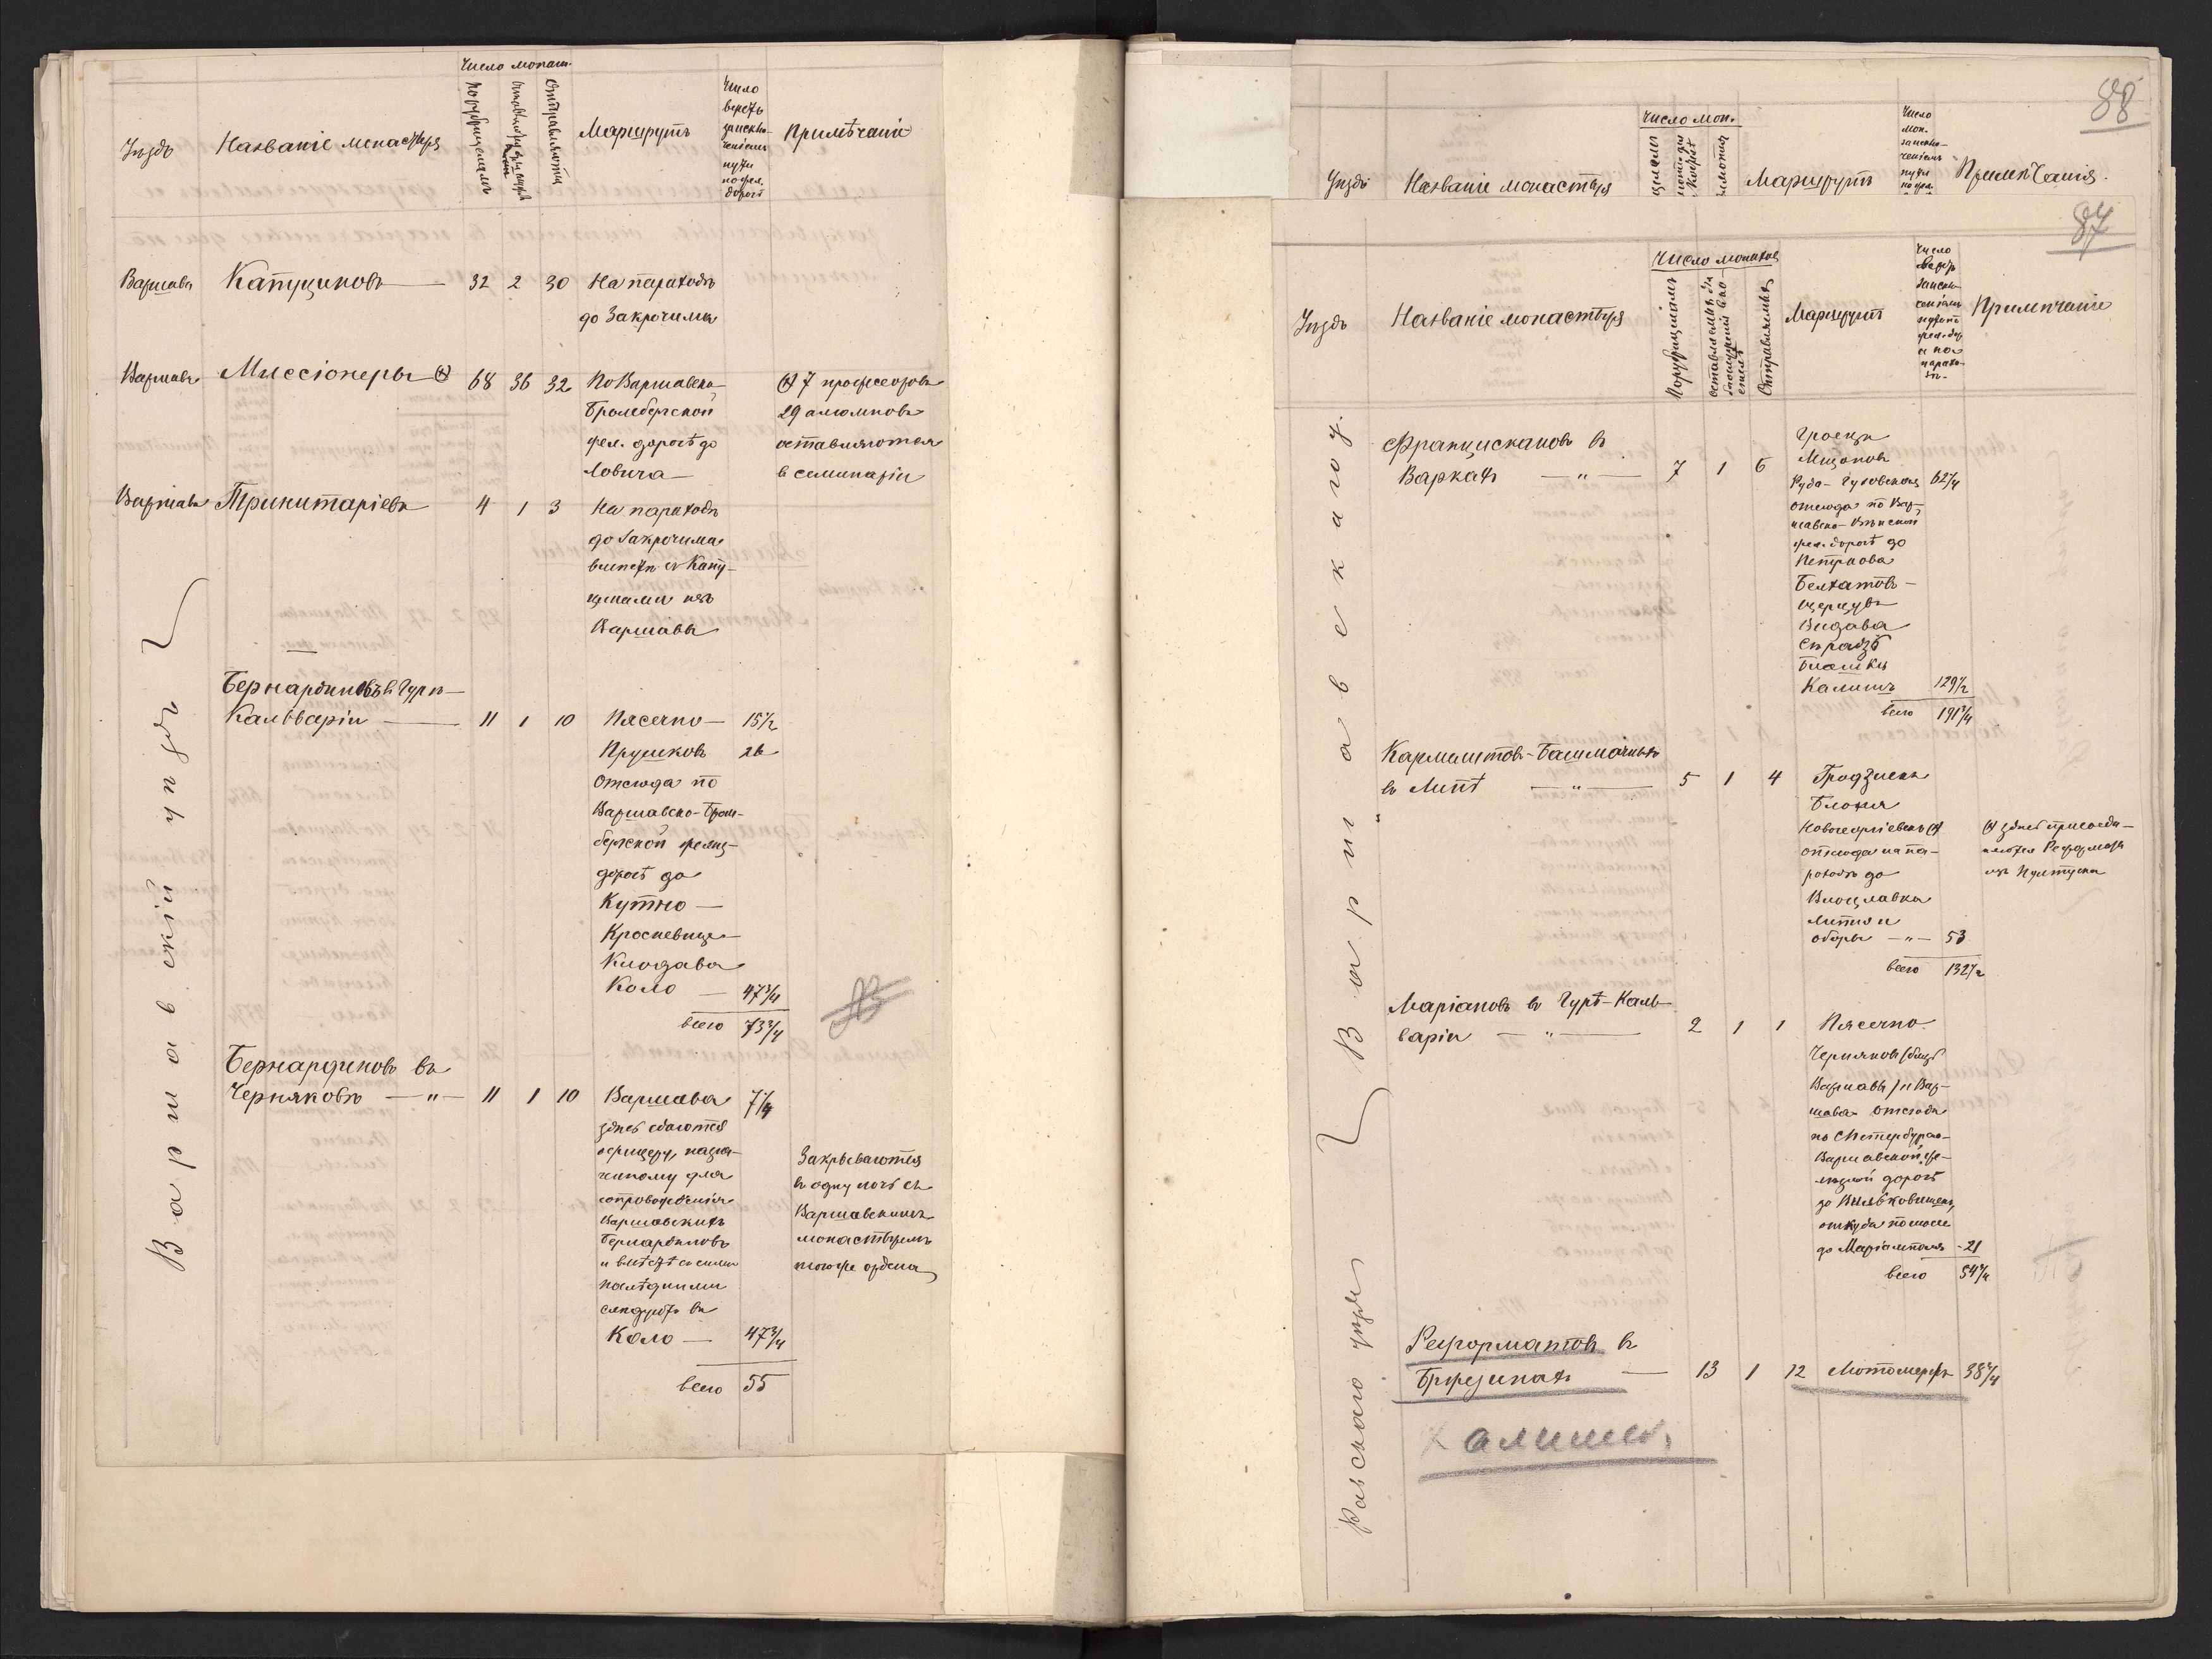 Число монах.
Уѣздъ
Названіе монастыря
Отправляются
Маршрутъ
Число
верстъ
за исклю-
ченіемъ
пути
по жел.
дорогѣ
Примѣчаніе
Варшава Капуциновъ — 32 2 30 На пароходѣ
до Закрочима
Варшава Миссіонеры (*) 68 36 32 По Варшавско-
Бромбергской
жел. дорогѣ до
Ловича —
(*) 7 профессоровъ
29 алюмновъ
оставляются
въ семинаріи
Варшава Тринитаріевъ 4 1 3 На пароходѣ
до Закрочима
вмѣстѣ съ Капу-
цинами изъ
Варшавы
Варшавскій уѣздъ
Бернардиновъ въ Гурѣ-
Кальваріи — 11 1 10 Пясечно — 15½
Прушковъ 26
отсюда по
Варшавско-Бром-
бергской желѣз-
дорогѣ до
Кутно —
Кросневице —
Клодава
Коло — 47¾
всего 73¾
Бернардиновъ въ
Черняковѣ — " — 11 1 10 Варшава 7¼
здѣсь сдаются
офицеру, назна-
ченному для
сопровожденія
Варшавскихъ
Бернардиновъ
и вмѣстѣ съ сими
послѣдними
слѣдуютъ въ
Коло — 47¾
всего 55
Закрываются
въ одну ночь съ
Варшавскимъ
монастыремъ
того же ордена
88
Число мон.
Уѣздъ Названіе монастыря
Маршрутъ
Число
мон.
за исклю-
ченіемъ
пути
по жел.
Примѣчанія.
87
Число монаховъ
Уѣздъ Названіе монастыря
По упраздненіямъ
Отправляемыхъ
Маршрутъ
Число
верстъ
за исклю-
ченіемъ
Примѣчаніе
Варшавскаго у.
Францискановъ въ
Варкахъ — " — 7 1 6
Гроецъ
Мщоновъ
Руда-Гузовская 62¼
отсюда по Вар-
шавско-Вѣнской
жел. дорогѣ до
Петркова
Белхатовъ —
Щерцувъ
Видава
Сѣрадзь
Блашки
Калишъ 129½
всего 191¾
Кармелитовъ-Башмачныхъ
въ Липѣ — " — 5 1 4 Гродзискъ
Блоня
Новогеоргіевскъ (*)
отсюда на па-
роходѣ до
Влоцлавка
Липно и
Оборы — " — 53
всего 132½
(*) здѣсь присоеди-
няются Реформаты
изъ Пултуска
Маріановъ въ Гурѣ-Каль-
варіи — " — 2 1 1 Пясечно.
Черняковъ (близъ
Варшавы) и Вар-
шава отсюда
по С. Петербурго-
Варшавской же-
лѣзной дорогѣ
до Вильковишекъ,
откуда по шоссе
до Маріамполя - 21
всего 54¼
Равскаго уѣзда
Реформатовъ въ
Бржезинахъ — 13 1 12 Лютомерскъ 38¼
Калишъ.